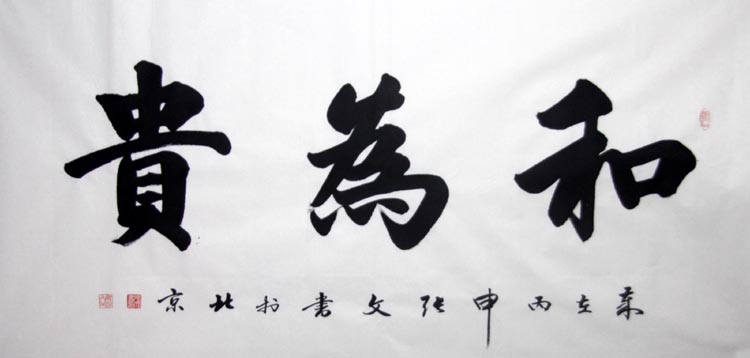 和為貴
歲在丙申張文書於北京